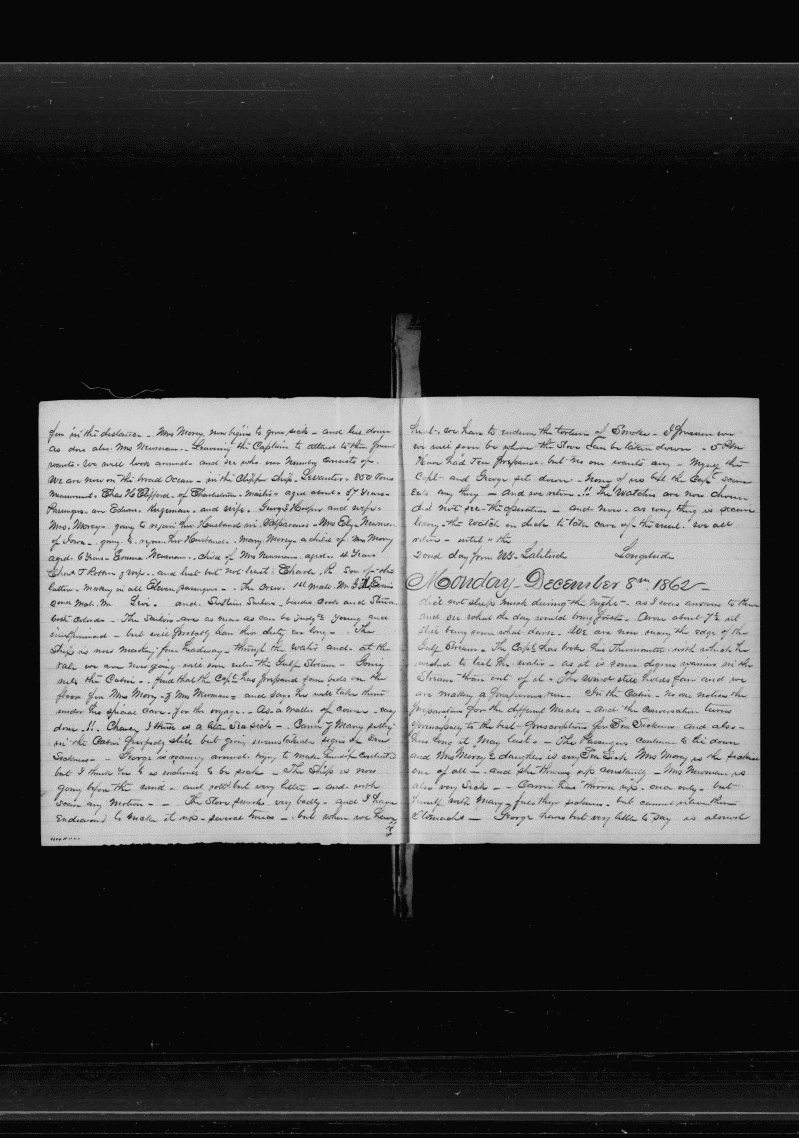 far in the distance - Mrs Morey now begins to grow sick - and lies down
as does also Mrs Newman - Leaving the Captain to attend to their
wants. We will look around - and see who our Number consists of.
We are now on the broad Ocean - in the Clipper Ship - 850 Tons
Chas H of Charlestown - aged about 37 Years -
and wife - Geo S and wife -
Mrs. Morey - going to rejoin her Husband in Valparaiso - Mrs Newman
of Iowa - going to rejoin her Husband. Mary Morey - a child of Mrs Morey
aged 6 Years - Emma Newman - child of Mrs Newman aged 4 Years.
Chas T and last but not least - Charles R Son of the
latter - making in all Eleven passengers - The Crew. 1st mate Mr
2nd Mate Mr and Sailors - besides Cook and
both colored - The Sailors are as near as can be judgd young and
but will probably learn their duty ere long - The
Ship is now making fair headway - through the water and at the
rate we are now going will soon enter the Gulf Stream - Going
into the Cabin - find that the Capt has prepared beds on the
floor for Mrs Morey - & Mrs Newman - and says he will take them
under his special care - for the voyage - As a matter of course - they
down !!. Charley I think is a little Sea sick - Carrie & Mary
in the Cabin perfectly still but giving signs of Sea
Sickness - George is roaming around - trying to make himself contented
but I think he is inclined to be sick - The Ship is now
going before the wind - and rolls but very little - and with
scarce any Motion - - The Stove smokes very badly - and I have
Endeavored to make it up - several times - but when we have
heat - we have to endure the torture of Smoke - I presume we
we will soon be where the Stove can be taken down - 5 PM
have had Tea prepared - but no one wants any - Myself the
Capt - and George sit down - None of us but the Capt
Eats any thing - and we retire - !! The Watches are now chosen
did not see the operation - and now - as every thing is secure
leaving the watch on deck to take care of the vessel - we all
retire - until - the
2nd day from NY - Latitude Longitude
Monday - December 8th 1862 -
did not sleep much during the night - as I was anxious to
and see what the day would bring forth - Arose about 7 -
still being some what dark - We are now near the edge of the
Gulf Stream - The Capt has broke his Thermometer - with which he
wished to test the water - as it is some degrees warmer in the
Stream than out of it - The Wind still holds fair and we
are making a run - In the Cabin - no one notices the
preparations for the different Meals - and the conversation turns
principally to the best prescriptions for Sea Sickness and also -
how long it may last - The Passengers continue to lie down
and Mrs Morey & daughter is very Sea Sick Mrs Morey is the sickest
one of all - and she throws up constantly - Mrs Newman is
also very Sick - - Carrie has thrown up - once only - but
herself with Mary - feel the sickness - but cannot relieve their
Stomachs - George has but very little to say is almost